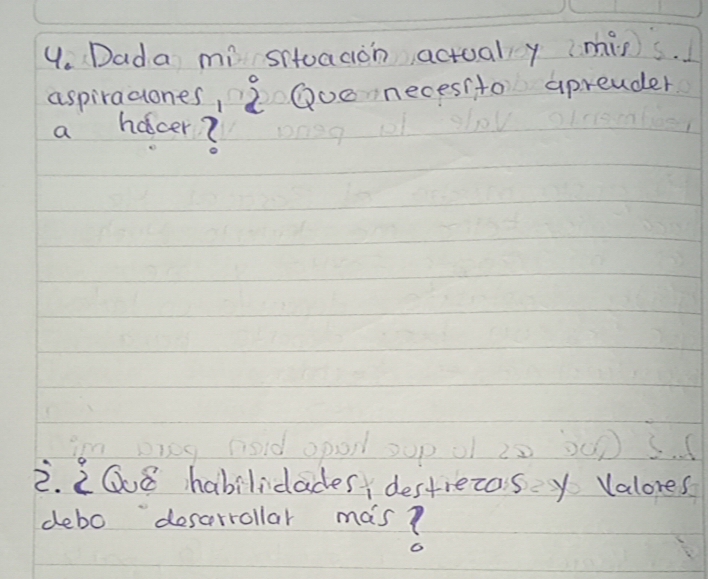 4. Dada mi situación actual y mis
aspiraciones, ¿Que necesito aprender
a hacer?
2. ¿Qué habilidades, destrezas y Valores
debo desarrollar más?